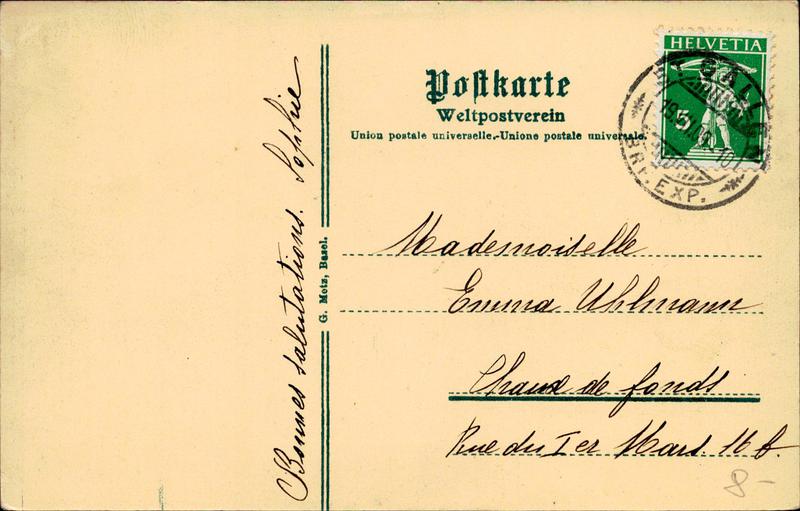 Bonnes salutations. Sophie
G. Metz, Basel.
Postkarte
Weltpostverein
Union postale universelle.-Unione postale universale.
HELVETIA
5
ST. GALLEN
BRF. EXP.
Mademoiselle
Emma Uhlmann
Chaux de fonds
Rue du Ier Mars 16 b.
8-